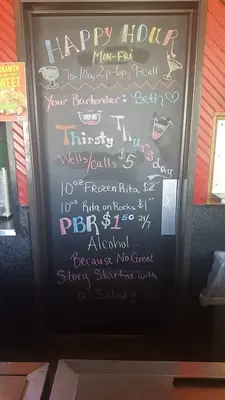 HAPPY HOUR
MON-FRI
7a-10a, 2p-6p, 9-call
Your Bartender: Beth
Thirsty Thursday
Wells/calls $5
10oz Frozen Rita $2
10oz Rita on Rocks $1
PBR $1.50 24/7
Alcohol...
Because No Great
Story Started with
a Salad!!
SWEET